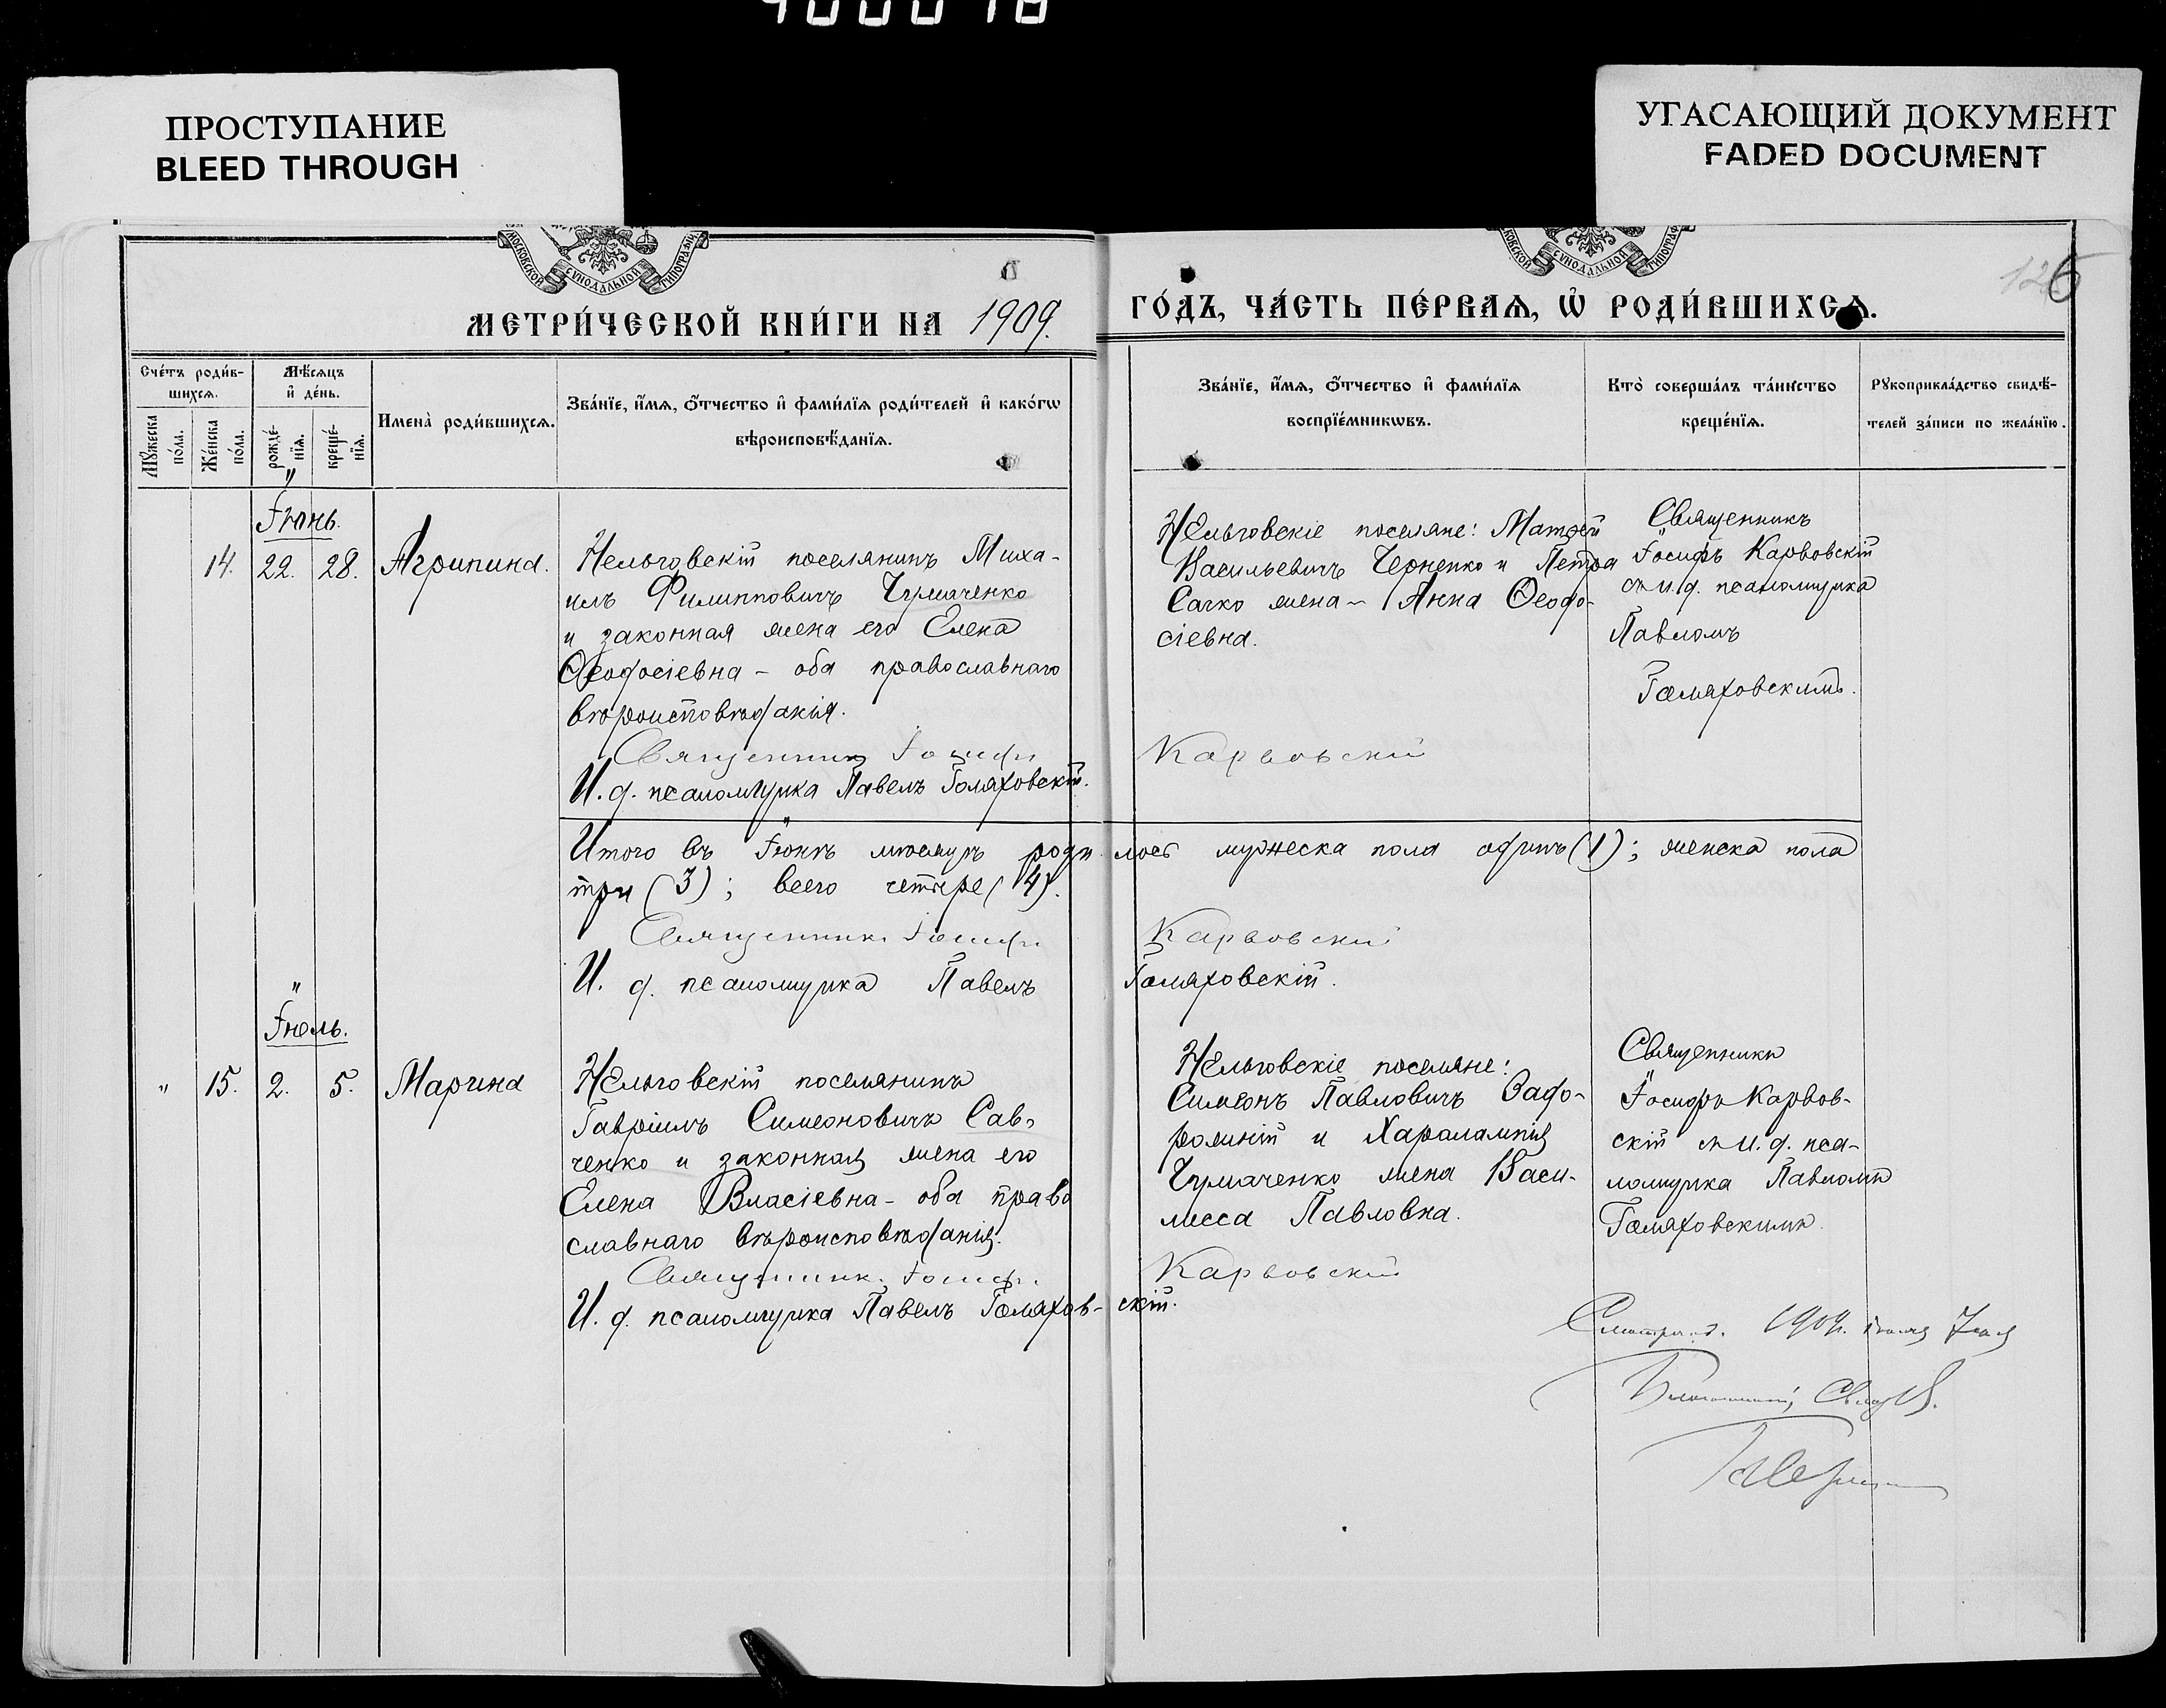 ПРОСТУПАНИЕ
BLEED THROUGH
УГАСАЮЩИЙ ДОКУМЕНТ
FADED DOCUMENT
МОСКОВСКОЙ СѴНОДАЛЬНОЙ ТИПОГРАФІИ
СѴНОДАЛЬНОЙ
126
МЕТРИ́ЧЕСКОЙ КНИ́ГИ НА 1909.
ГО́ДЪ, ЧА́СТЬ ПЕ́РВАѦ, Ѡ҆ РОДИ́ВШИХСѦ.
Сче́тъ роди́в-
шихсѧ.
Мꙋ́жеска
по́ла.
Же́нска
по́ла.
Мѣ́сѧцъ
и҆ де́нь.
рожде́-
нїѧ.
креще́-
нїѧ.
Имена̀ роди́вшихсѧ.
Зва́нїе, и҆́мѧ, ѻ҆́тчество и҆ фами́лїѧ роди́телей и҆ како́гѡ
вѣроисповѣ́данїѧ.
Зва́нїе, и҆́мѧ, ѻ҆́тчество и҆ фами́лїѧ
воспрїе́мникѡвъ.
Кто̀ соверша́лъ та́инство
креще́нїѧ.
Рꙋкоприкла́дство свидѣ́-
телей за́писи по жела́нїю.
Іюнь.
14. 22. 28. Агрипина.
Нельговскій поселянинъ Миха-
илъ Филипповичъ Чумаченко
и законная жена его Елена
Ѳеодосіевна - оба православнаго
вѣроисповѣданія.
Священникъ Іосифъ Карвовскій
И. д. псаломщика Павелъ Голяховскій.
Нельговскіе поселяне: Матѳей
Васильевичъ Черненко и Петра
Сачко жена - Анна Ѳеодо-
сіевна.
Священникъ
Іосифъ Карвовскій
съ и. д. псаломщика
Павломъ
Голяховскимъ.
Итого въ Іюнѣ мѣсяцѣ родилось мужеска пола одинъ (1); женска пола
три (3); всего четыре (4).
Священникъ Іосифъ Карвовскій
И. д. псаломщика Павелъ Голяховскій.
Іюль.
" 15. 2. 5. Марина
Нельговскій поселянинъ
Гавріилъ Симеоновичъ Сав-
ченко и законная жена его
Елена Власіевна - оба право
славнаго вѣроисповѣданія.
Священникъ Іосифъ Карвовскій
И. д. псаломщика Павелъ Голяхов- скій.
Нельговскіе поселяне:
Симеонъ Павловичъ Задо-
рожній и Харалампія
Чумаченко жена Васи-
лисса Павловна.
Священникъ
Іосифъ Карвов-
скій съ и. д. пса-
ломщика Павломъ
Голяховскимъ.
1909. іюля 7 дня